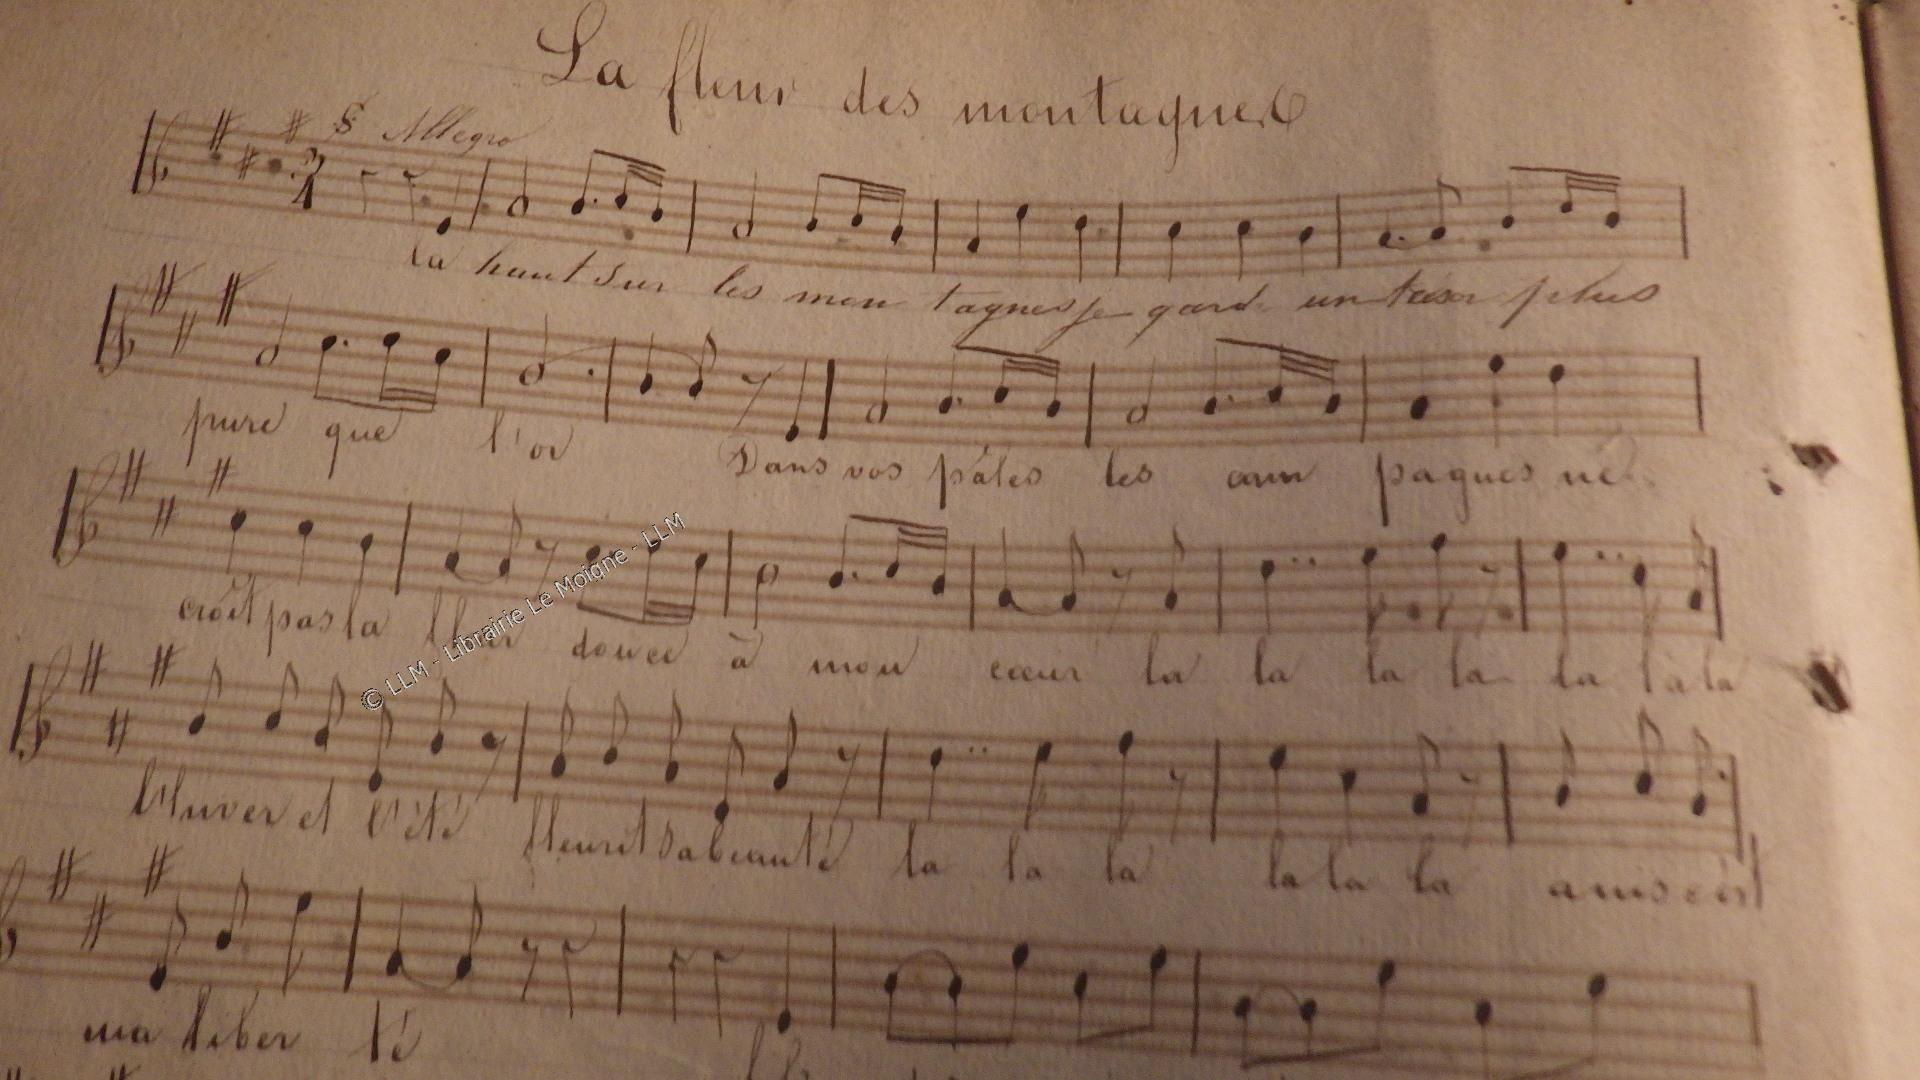 La fleur des montagnes
Allegro
La haut sur les mon tagnes je gard un tresor plus
pure que l'or Dans vos pâles les cam pagnes ne
croît pas la fleur douce à mon cœur la la la la la la la
l'hiver et l'été fleurit sa beauté la la la la la la
ma liber té
© LLM - Librairie Le Moigne - LLM